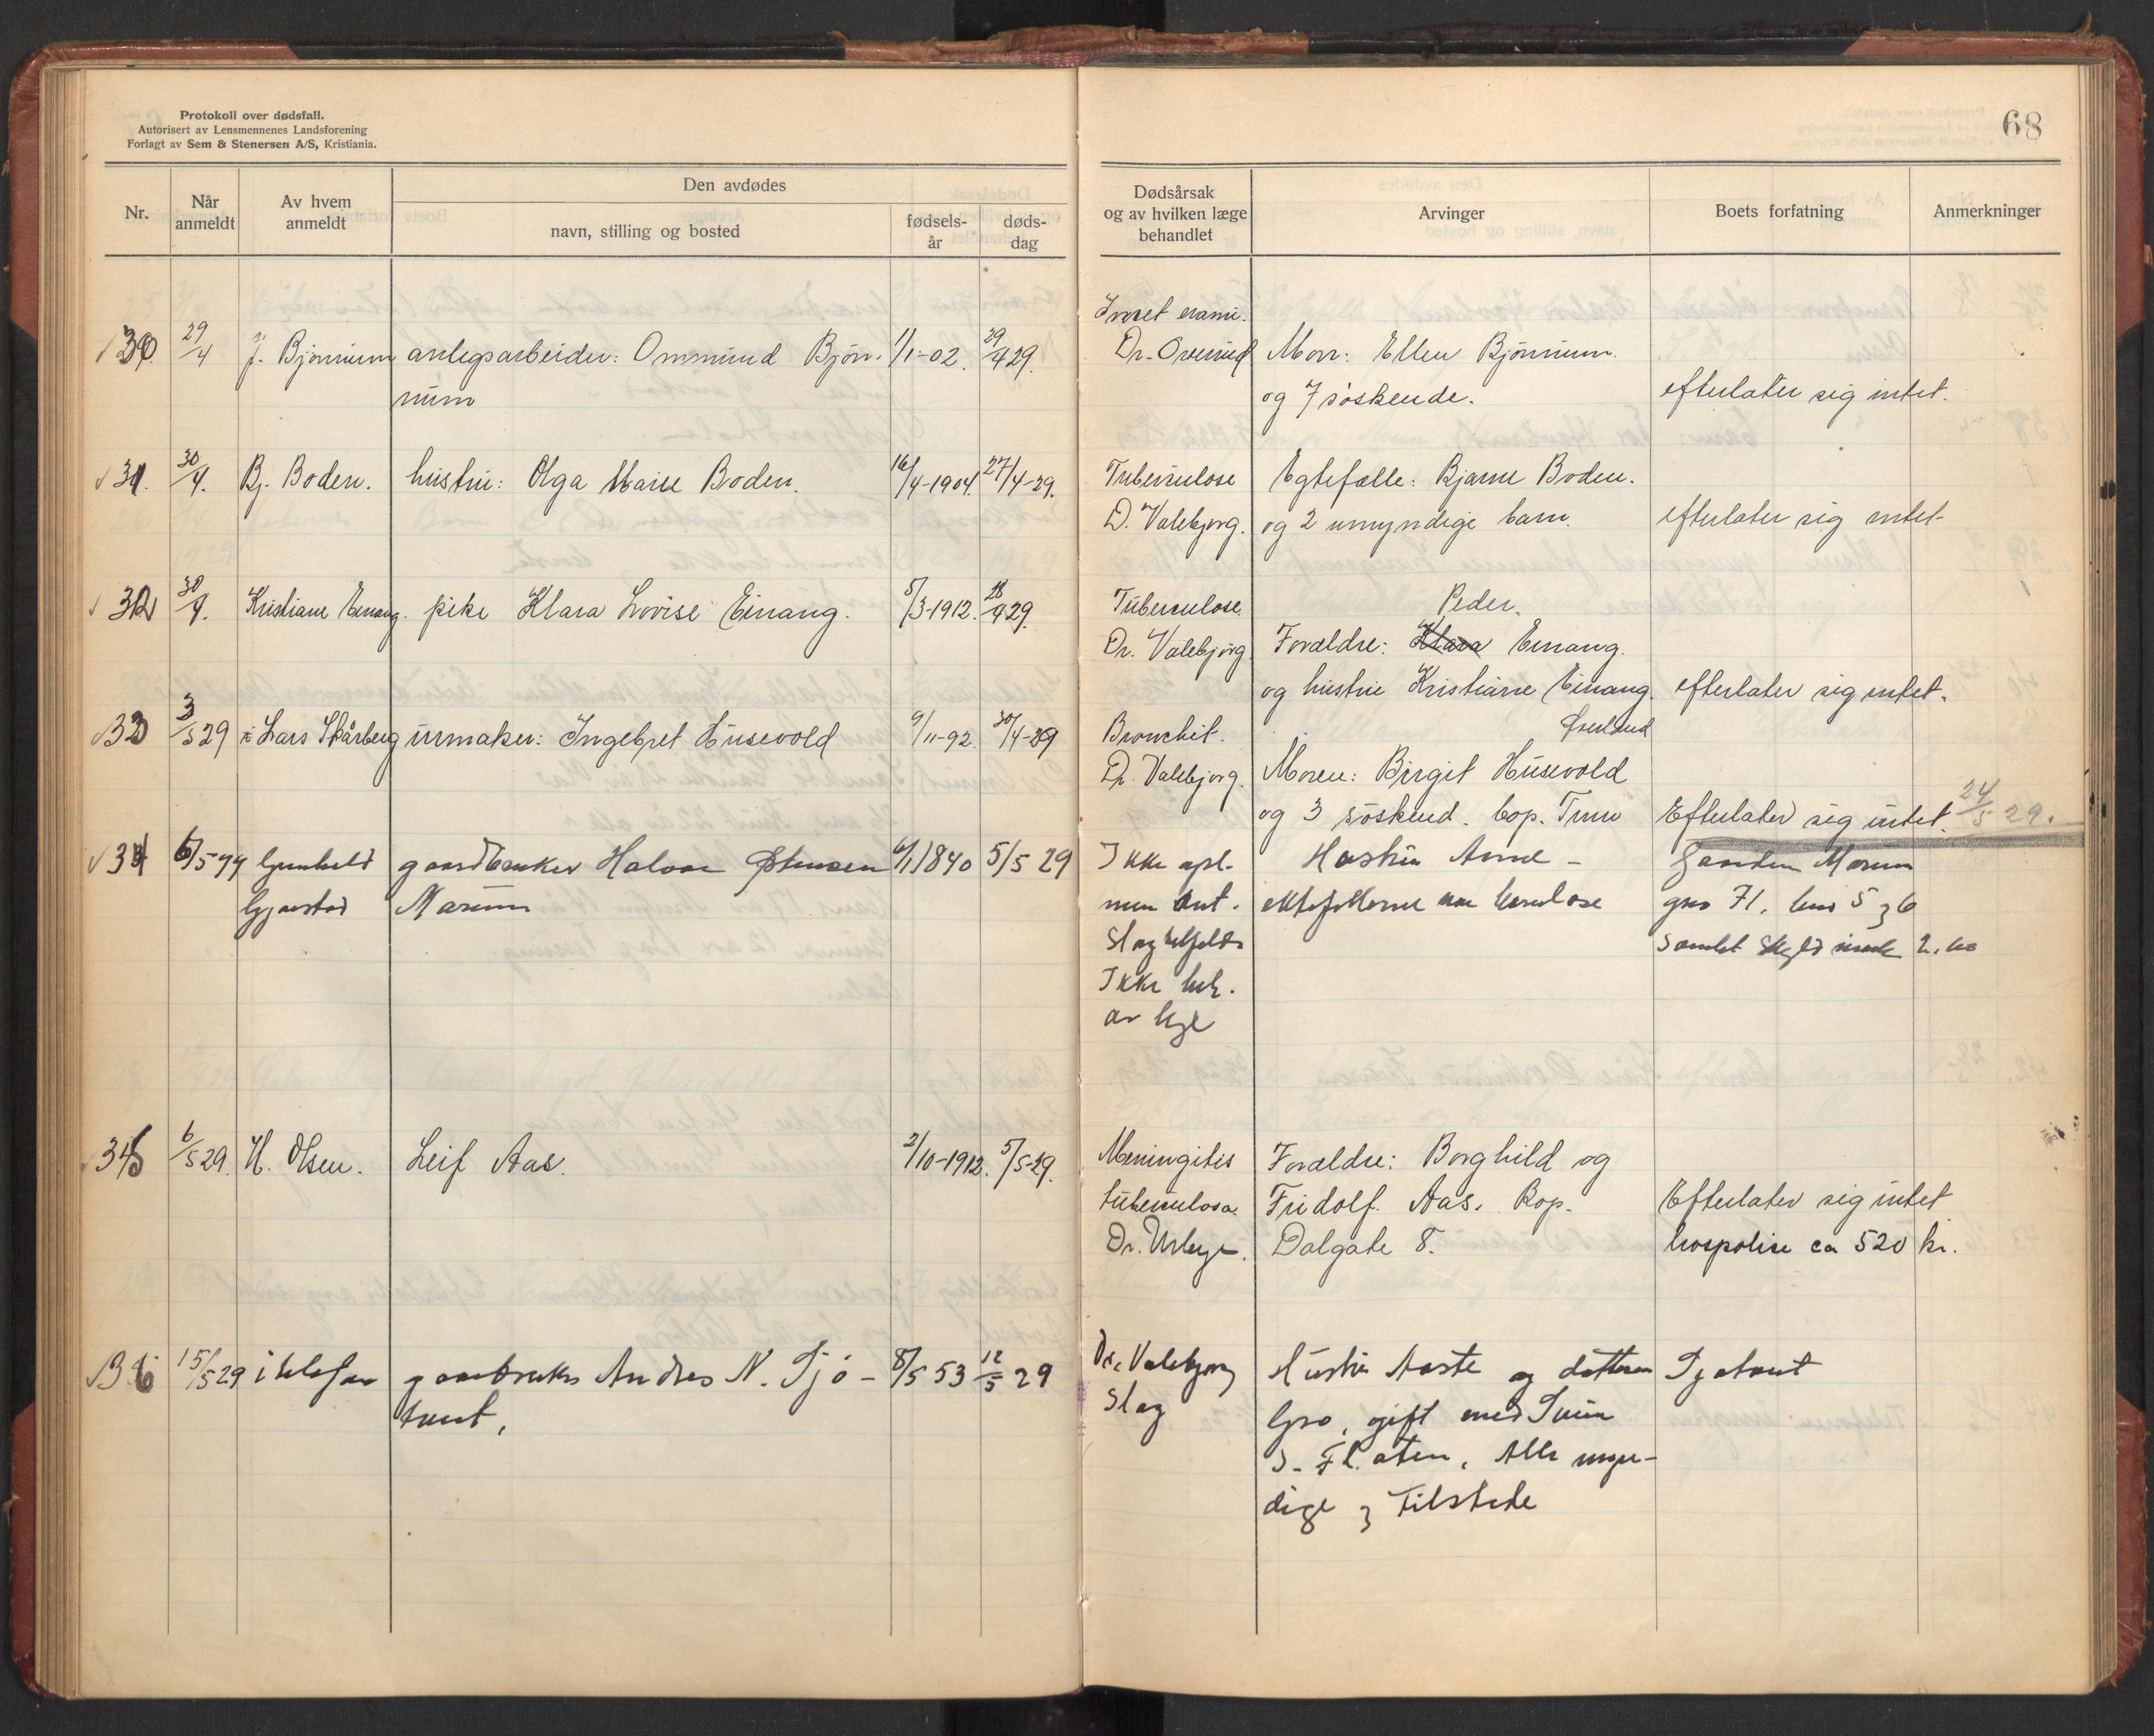 Protokoll over dødsfall.
Autorisert av Lensmennenes Landsforening
Forlagt av Sem & Stenersen A/S, Kristiania.
68
Nr.
Når anmeldt
Av hvem anmeldt
Den avdødes
navn, stilling og bosted
fødsels-år
døds-dag
Dødsårsak og av hvilken læge behandlet
Arvinger
Boets forfatning
Anmerkninger
30. 29/4 J. Bjørnum anlegsarbeider: Ommund Bjørn- 1/1-02. 29/4 29. Dr. Morr: Ellen Bjørnum.
num og 7 søskende. efterlater sig intet.
31. 30/4. Bj. Boden. hustru: Olga Marie Boden. 16/4-1904. 27/4-29. Tuberculose Egtefælle: Bjarne Boden.
D. Valebjørg. og 2 umyndige barn. efterlater sig intet-
32 30/4. Kristiane Einang. pike Klara Lovise Einang. 5/3-1912. 28/4 29. Tuberculose. Peder.
Dr. Valebjørg Forældre: Klara Einang.
og hustru Kristiane Einang. efterlater sig intet.
33 3/5 29 Lars Skårberg urmaker: Ingebret Husevold 9/11-92. 30/4-29 Bronchit.
Dr. Valebjørg. Moren: Birgit Husevold
og 3 søskend. Efterlater sig intet. 24/5 29.
34 6/5 Gunhild gaardbruker Halvor Østensen 1840 5/5 29 Ikke Hustru Anne - Gaarden Marum
Marum ektefellerne barnløse gno 71, 5 og 6
Slag samlet skyld mark
Ikke beh.
av lege
35 6/5 29. H. Olsen. Leif Aas. 2/10-1912. 5/5-29. Meningitis Forældre: Borghild og
tuberculosa. Fridolf Aas. Bop. Efterlater sig intet
Dr. Dalgate 8. ca 520 kr.
36 15/5 29 gaardbruker Andres N. Tjø- 8/5 53 12/5 29 Dr. Valebjørg Hustru Aaste og datteren
tunt, Slag Gro, gift med
S. Flaten, Alle myn-
dige og tilstede